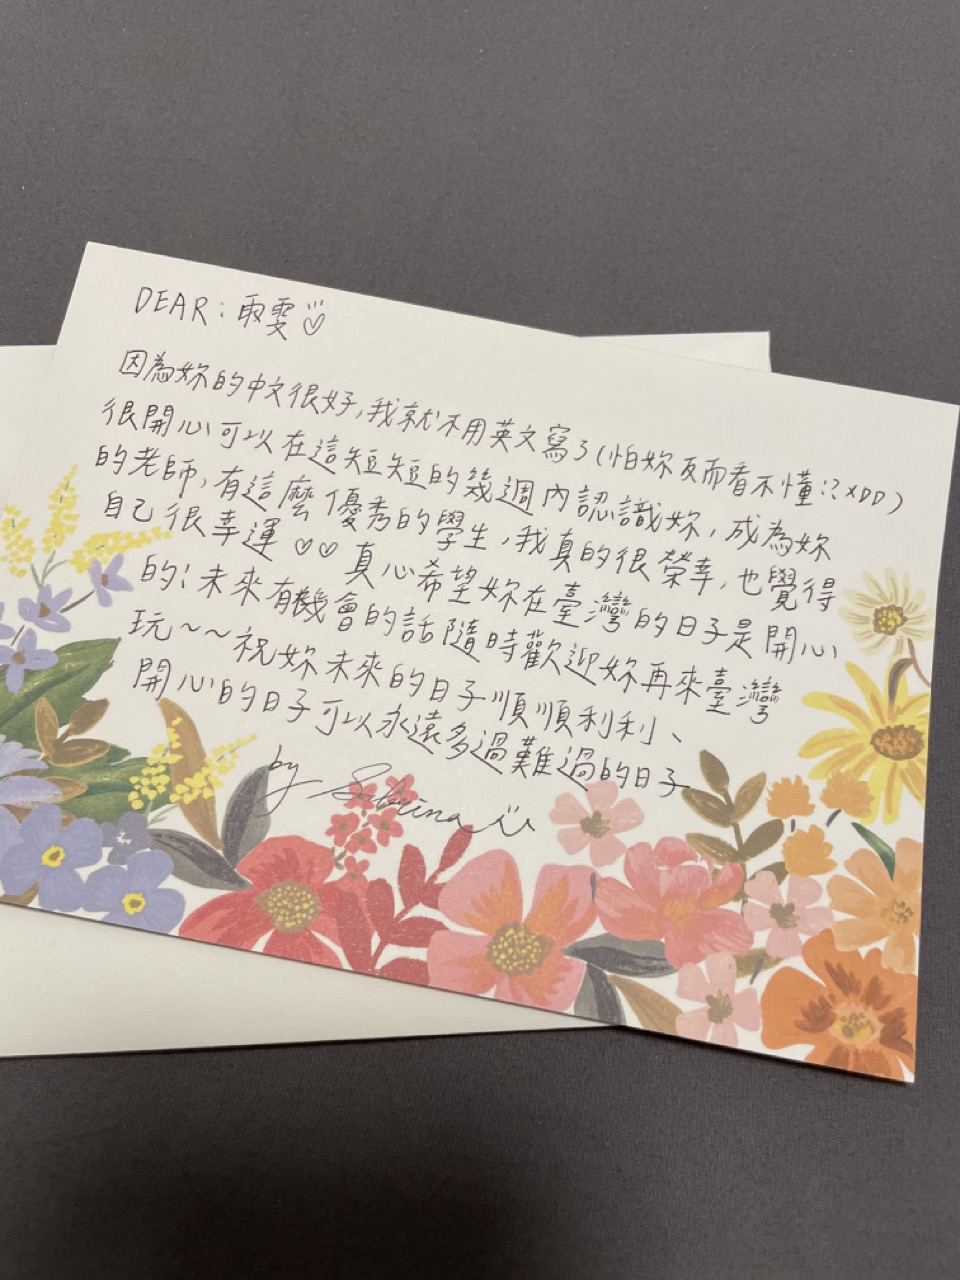 DEAR：雨雯♡
因為妳的中文很好，我就不用英文寫了（怕妳反而看不懂！？XDD）
很開心可以在這短短的幾週內認識妳，成為妳
的老師，有這麼優秀的學生，我真的很榮幸，也覺得
自己很幸運♡♡ 真心希望妳在臺灣的日子是開心
的！未來有機會的話隨時歡迎妳再來臺灣
玩～～祝妳未來的日子順順利利、
開心的日子可以永遠多過難過的日子
by Sabrina